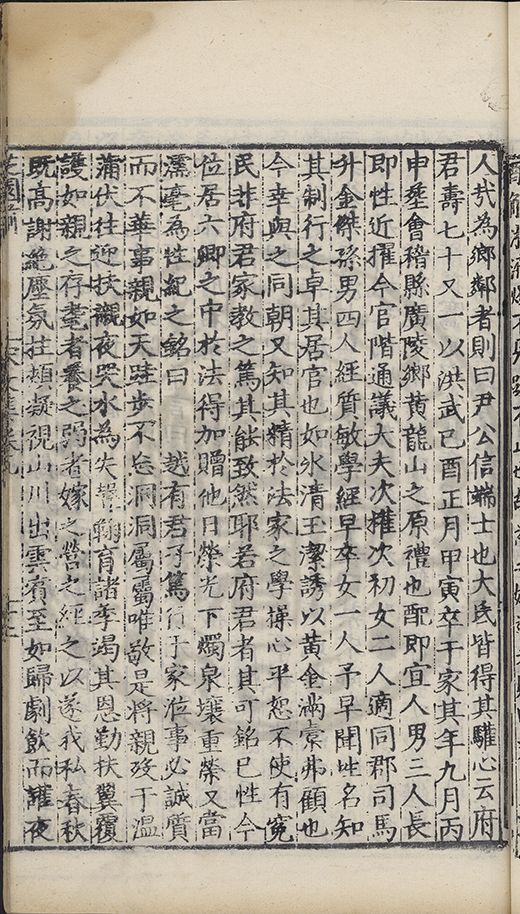 人哉為鄉鄰者則曰尹公信端士也大民皆得其驩心云府
君壽七十又一以洪武己酉正月甲寅卒于家其年九月丙
申塟會稽縣廣陵鄉黄龍山之原禮也配即宜人男三人長
即性近擢今官階通議大夫次權次初女二人適同郡司馬
升金傑孫男四人經質敏學經早卒女一人予早聞性名知
其制行之卓其居官也如氷清玉潔誘以黄金滿橐弗顧也
今幸與之同朝又知其精於法家之學操心平恕不使有寃
民非府君家教之篤其能致然耶若府君者其可銘已性今
位居六卿之中於法得加贈他日榮光下燭泉壤重榮又當
濡毫為性紀之銘曰 越有君子篤行于家涖事必誠質
而不華事親如天跬步不忘洞洞屬屬唯敬是將親歿于溫
蒲伏往迎扶櫬夜哭水為失聲鞠育諸季竭其恩勤扶翼覆
護如親之存耄者養之弱者嫁之營之經之以遂我私春秋
既高謝絶塵氛拄頰凝視山川出雲賓至如歸劇飲而讙夜